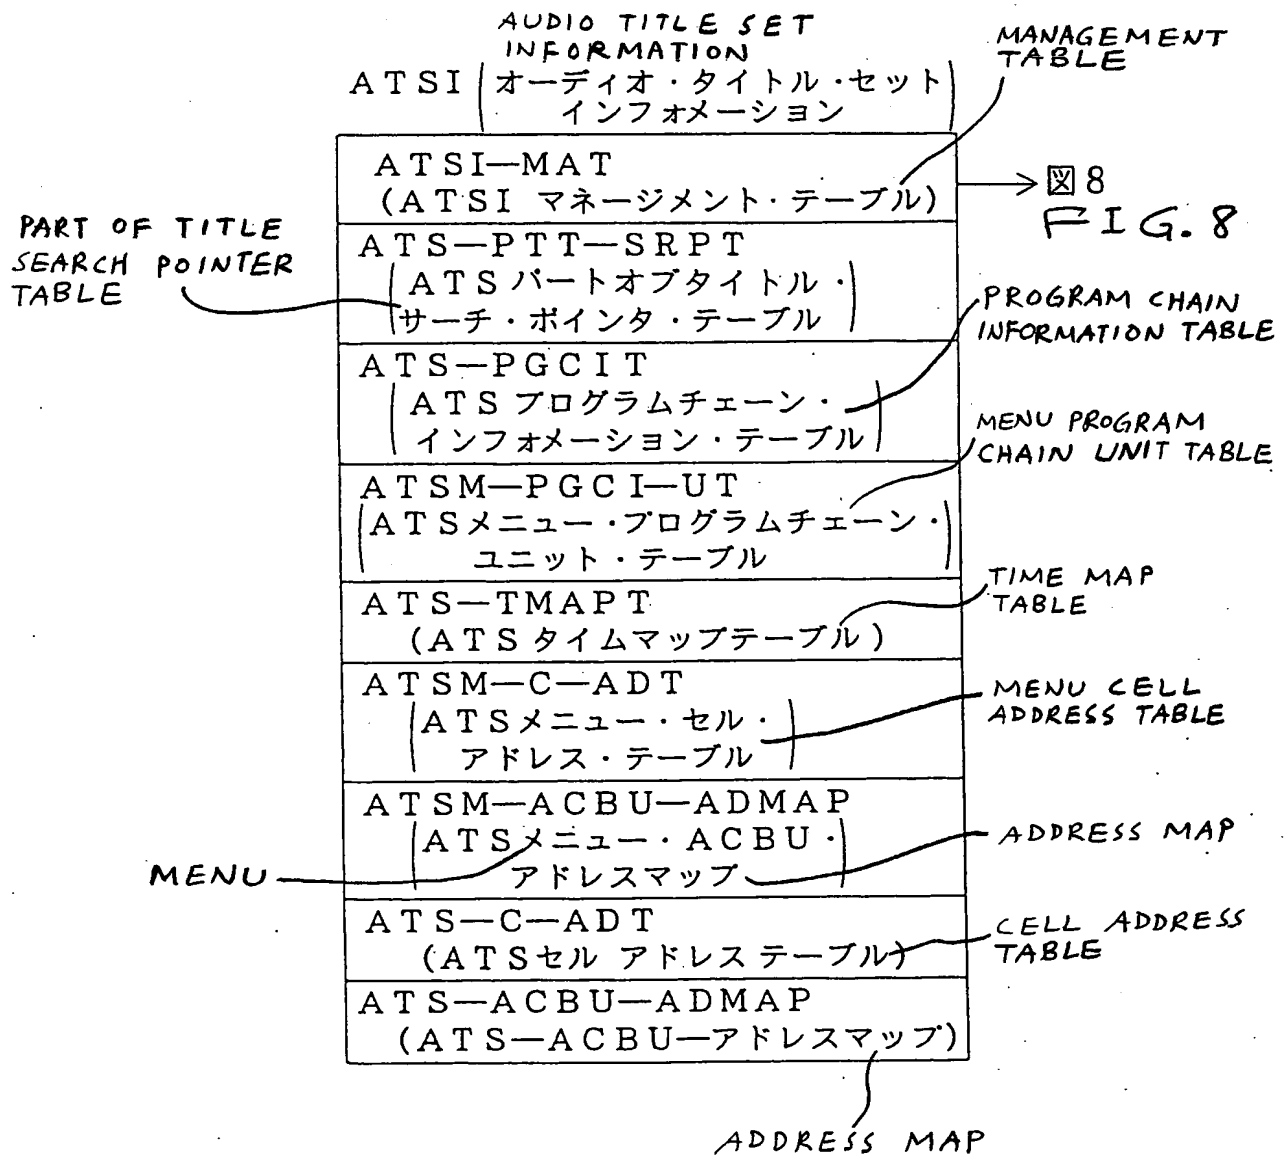 AUDIO TITLE SET
INFORMATION
ATSI(オーディオ・タイトル・セット
インフォメーション)
MANAGEMENT
TABLE
ATSI—MAT
(ATSI マネージメント・テーブル)
図8
FIG.8
PART OF TITLE
SEARCH POINTER
TABLE
ATS—PTT—SRPT
(ATSパートオブタイトル・
サーチ・ポインタ・テーブル)
PROGRAM CHAIN
INFORMATION TABLE
ATS—PGCIT
(ATSプログラムチェーン・
インフォメーション・テーブル)
MENU PROGRAM
CHAIN UNIT TABLE
ATSM—PGCI—UT
(ATSメニュー・プログラムチェーン・
ユニット・テーブル)
TIME MAP
TABLE
ATS—TMAPT
(ATSタイムマップテーブル)
ATSM—C—ADT
(ATSメニュー・セル・
アドレス・テーブル)
MENU CELL
ADDRESS TABLE
ATSM—ACBU—ADMAP
(ATSメニュー・ACBU・
アドレスマップ)
ADDRESS MAP
MENU
ATS—C—ADT
(ATSセル アドレス テーブル)
CELL ADDRESS
TABLE
ATS—ACBU—ADMAP
(ATS—ACBU—アドレスマップ)
ADDRESS MAP